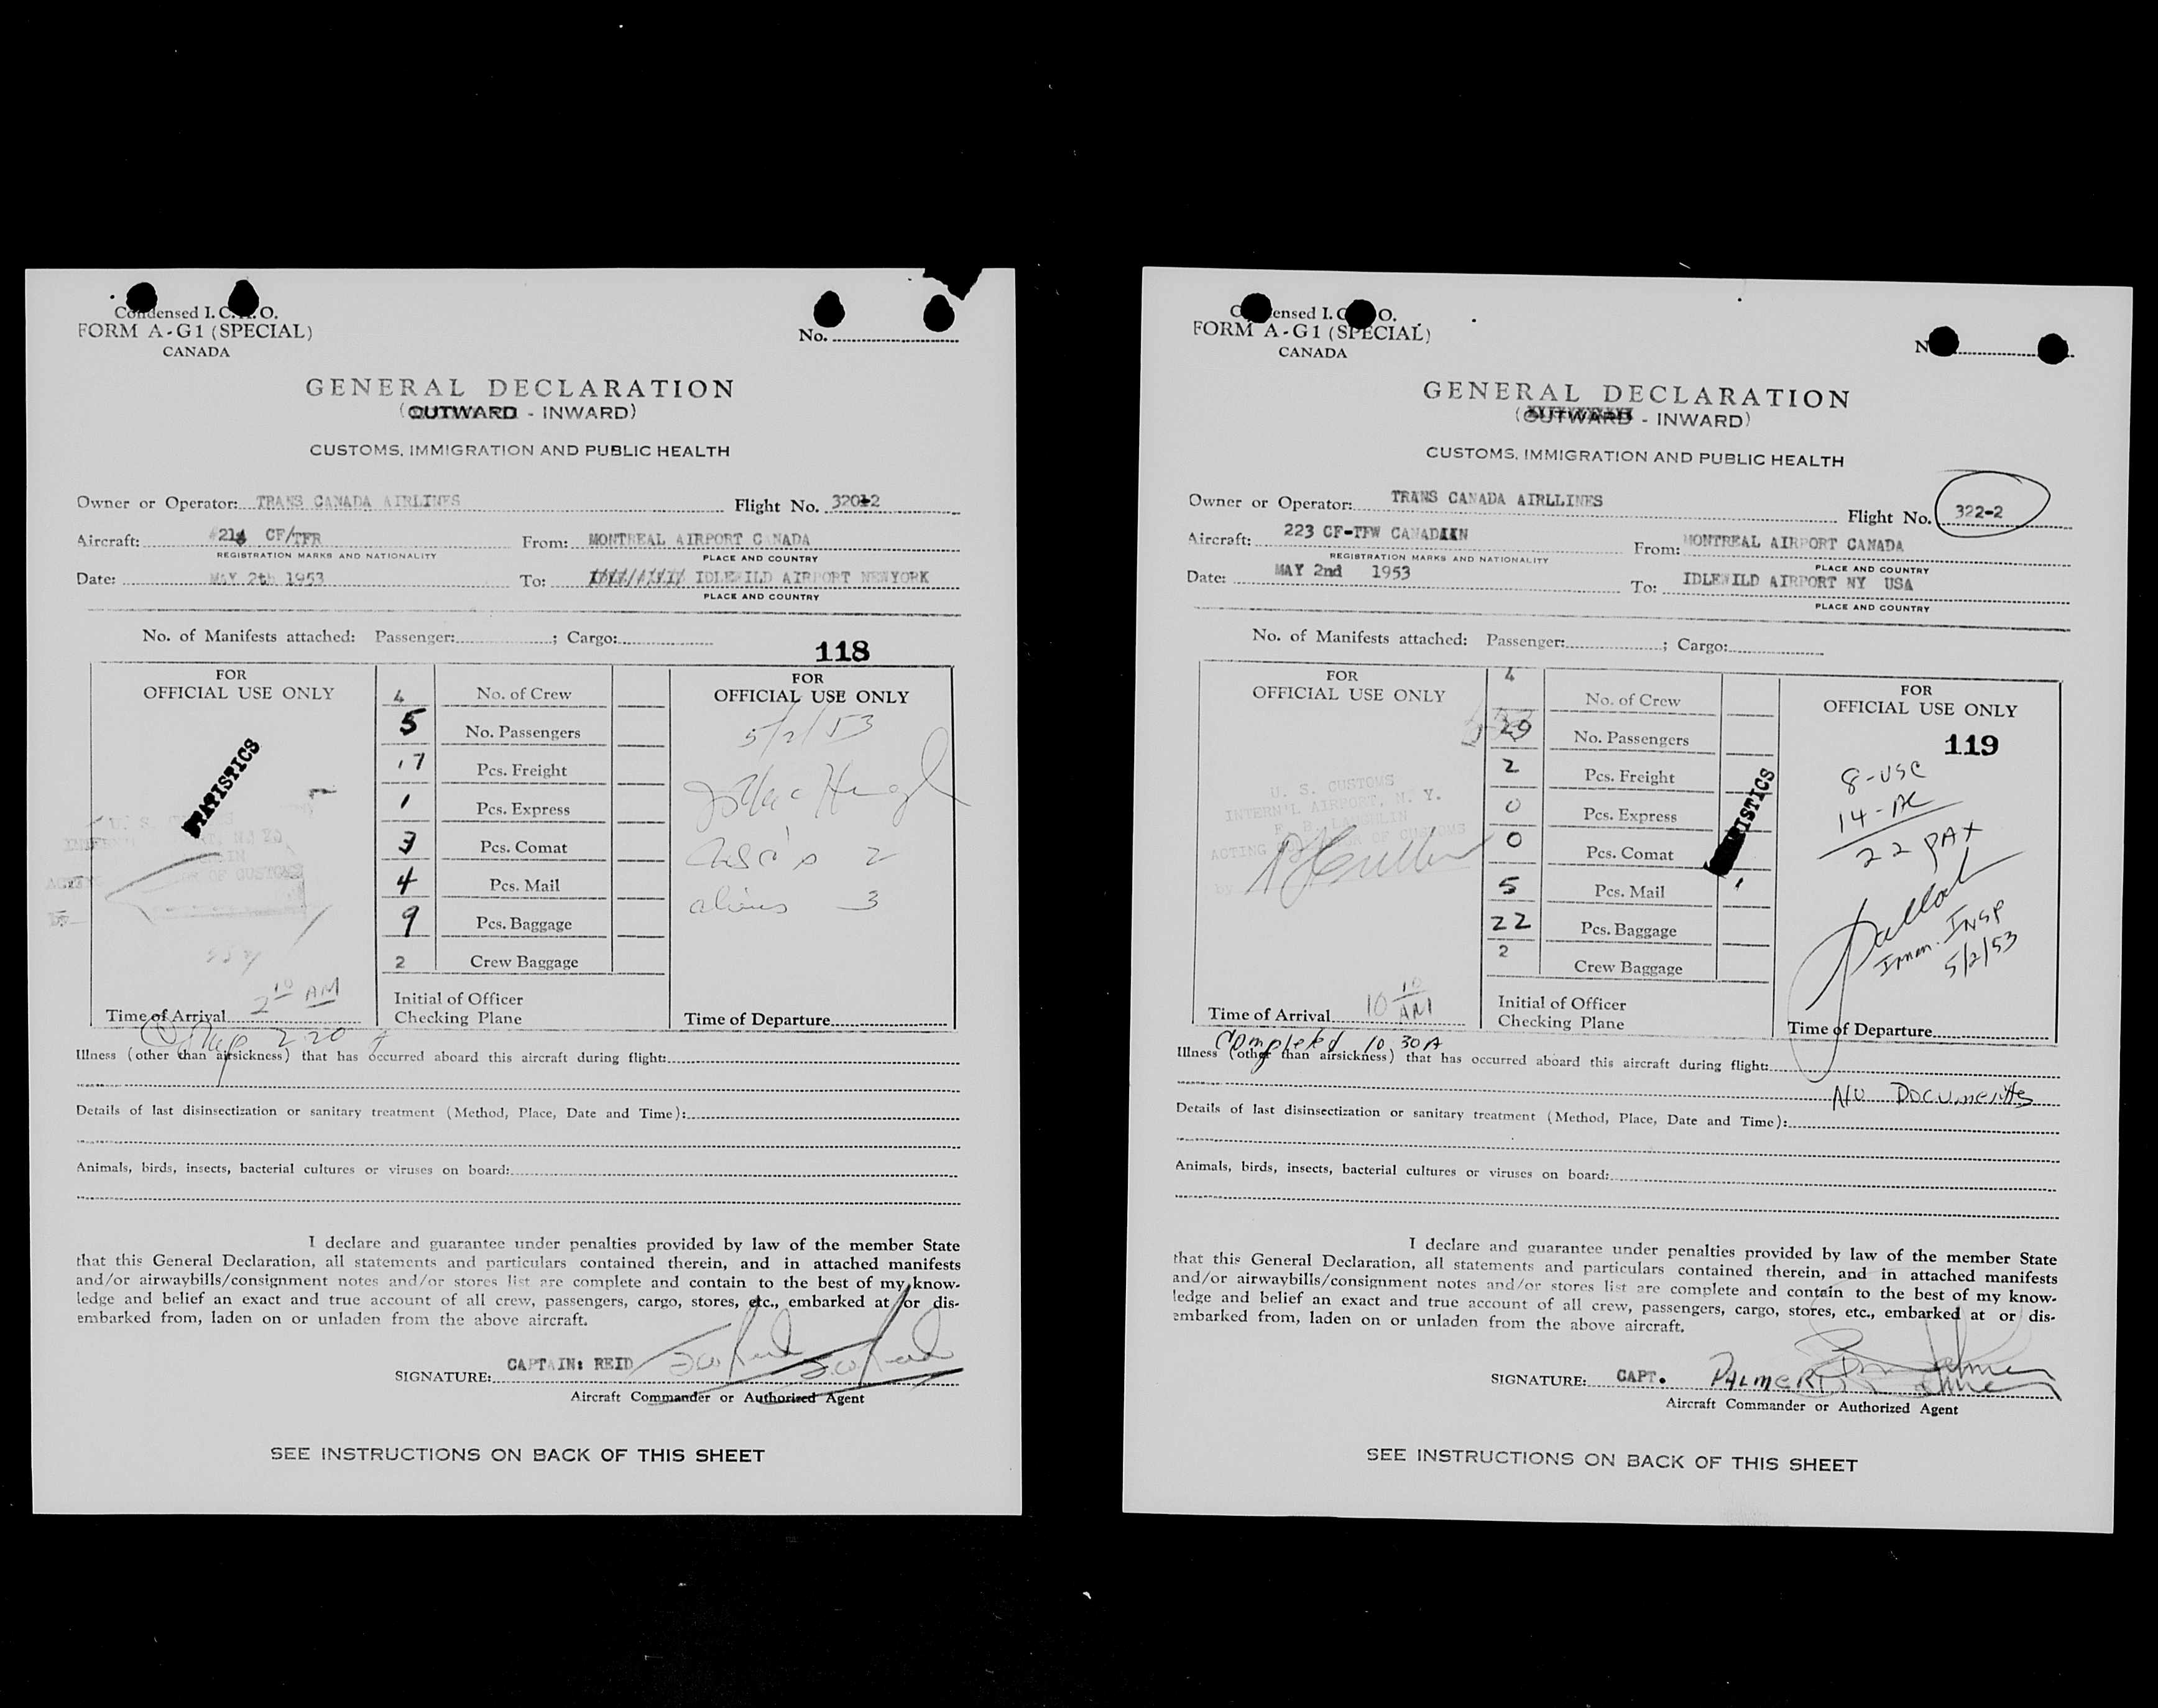 Condensed I.C.A.O.
FORM A-G1 (SPECIAL)
CANADA
No.
GENERAL DECLARATION
(OUTWARD - INWARD)
CUSTOMS, IMMIGRATION AND PUBLIC HEALTH
Owner or Operator: TRANS CANADA AIRLINES Flight No. 320-2
Aircraft: CF/TFR From: MONTREAL AIRPORT CANADA
REGISTRATION MARKS AND NATIONALITY PLACE AND COUNTRY
Date: MAY 2th 1953 To: IDLEWILD AIRPORT NEWYORK
PLACE AND COUNTRY
No. of Manifests attached: Passenger: ; Cargo:
118
FOR
OFFICIAL USE ONLY
STATISTICS
Time of Arrival 2 10 AM
4 No. of Crew
5 No. Passengers
17 Pcs. Freight
1 Pcs. Express
3 Pcs. Comat
4 Pcs. Mail
9 Pcs. Baggage
2 Crew Baggage
Initial of Officer
Checking Plane
FOR
OFFICIAL USE ONLY
5/2/53
2
aliens 3
Time of Departure
2 20
Illness (other than airsickness) that has occurred aboard this aircraft during flight:
Details of last disinsectization or sanitary treatment (Method, Place, Date and Time):
Animals, birds, insects, bacterial cultures or viruses on board:
I declare and guarantee under penalties provided by law of the member State
that this General Declaration, all statements and particulars contained therein, and in attached manifests
and/or airwaybills/consignment notes and/or stores list are complete and contain to the best of my know-
ledge and belief an exact and true account of all crew, passengers, cargo, stores, etc., embarked at or dis-
embarked from, laden on or unladen from the above aircraft.
SIGNATURE: CAPTAIN: REID
Aircraft Commander or Authorized Agent
SEE INSTRUCTIONS ON BACK OF THIS SHEET
Condensed I.C.A.O.
FORM A-G1 (SPECIAL)
CANADA
No.
GENERAL DECLARATION
(OUTWARD - INWARD)
CUSTOMS, IMMIGRATION AND PUBLIC HEALTH
Owner or Operator: TRANS CANADA AIRLLINES Flight No. 322-2
Aircraft: 223 CF-TFW From: MONTREAL AIRPORT CANADA
REGISTRATION MARKS AND NATIONALITY PLACE AND COUNTRY
Date: MAY 2nd 1953 To: IDLEWILD AIRPORT NY USA
PLACE AND COUNTRY
No. of Manifests attached: Passenger: ; Cargo:
FOR
OFFICIAL USE ONLY
U. S. CUSTOMS
INTERN'L AIRPORT, N. Y.
F. B. LAUGHLIN
ACTING COLLECTOR OF CUSTOMS
by
Time of Arrival 10 10 AM
4 No. of Crew
No. Passengers
2 Pcs. Freight
0 Pcs. Express
0 Pcs. Comat
5 Pcs. Mail
22 Pcs. Baggage
2 Crew Baggage
Initial of Officer
Checking Plane
STATISTICS
FOR
OFFICIAL USE ONLY
119
8-USC
14-AC
22 PAX
Immn. INSP
5/2/53
Time of Departure
Completed 10 30A
Illness (other than airsickness) that has occurred aboard this aircraft during flight:
No Documents
Details of last disinsectization or sanitary treatment (Method, Place, Date and Time):
Animals, birds, insects, bacterial cultures or viruses on board:
I declare and guarantee under penalties provided by law of the member State
that this General Declaration, all statements and particulars contained therein, and in attached manifests
and/or airwaybills/consignment notes and/or stores list are complete and contain to the best of my know-
ledge and belief an exact and true account of all crew, passengers, cargo, stores, etc., embarked at or dis-
embarked from, laden on or unladen from the above aircraft.
SIGNATURE: CAPT. PALMER
Aircraft Commander or Authorized Agent
SEE INSTRUCTIONS ON BACK OF THIS SHEET